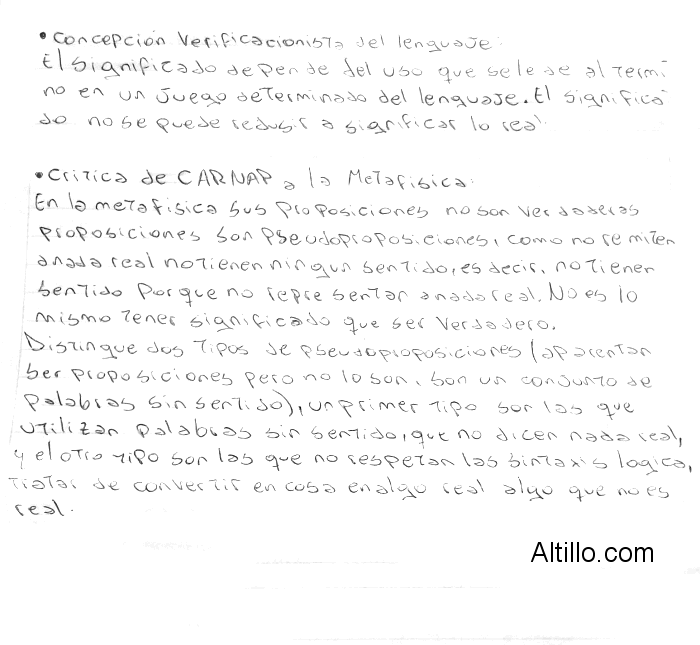 • Concepción Verificacionista del lenguaje:
El significado depende del uso que se le de al termi
no en un juego determinado del lenguaje. El significa
do no se puede redusir a significar lo real.
• Critica de CARNAP a la Metafisica:
En la metafisica sus proposiciones no son verdaderas
proposiciones son pseudoproposiciones, como no remiten
a nada real no tienen ningun sentido, es decir, no tienen
sentido porque no representan a nada real. No es lo
mismo tener significado que ser verdadero.
Distingue dos tipos de pseudoproposiciones (aparentan
ser proposiciones pero no lo son, son un conjunto de
palabras sin sentido), un primer tipo son las que
utilizan palabras sin sentido, que no dicen nada real,
y el otro tipo son las que no respetan las sintaxis logica,
tratar de convertir en cosa en algo real algo que no es
real.
Altillo.com